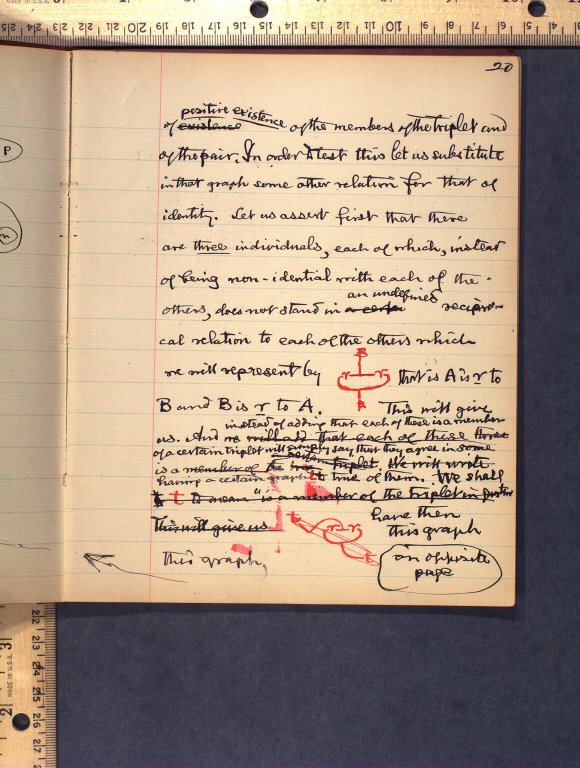 20
positive existence
of existence of the members of the triplet and
of the pair. In order to test this let us substitute
in that graph some other relation for that of
identity. Let us assert first that there
are three individuals, each of which, instead
of being non-idential with each of the
an undefined
others, does not stand in a certain recipro-
cal relation to each of the others which
we will represent by B r r A that is A is r to
B and B is r to A. This will give
instead of adding that each of these is a member
us. And we will add that each of these three
of a certain triplet will simply say that they agree in some
is a member of the triplet. We will write
having a certain graph t true of them. We shall
t to mean "is a member of the triplet in
have then
This will give us t r r t this graph
this graph, on opposite
page